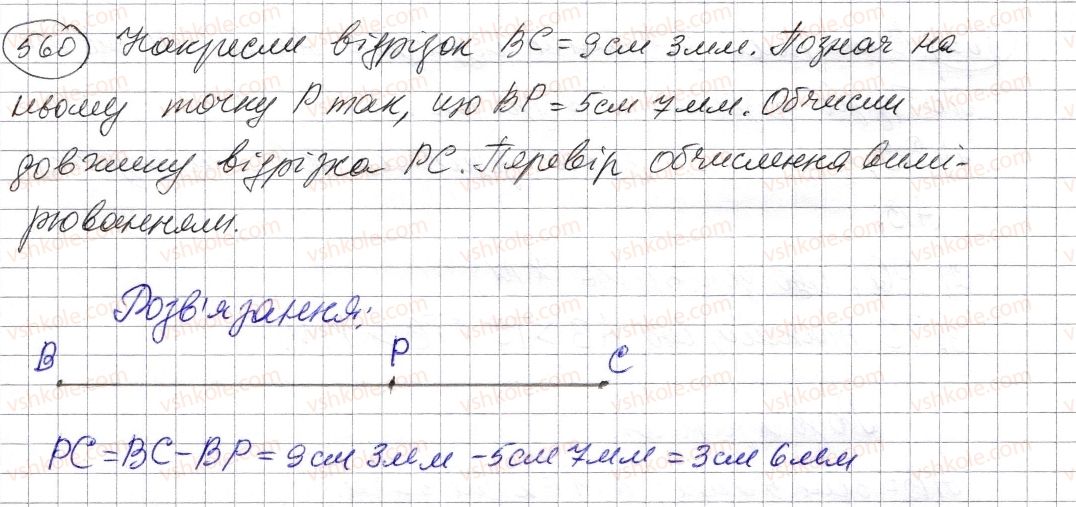 560 Накресли відрізок BC = 9 см 3 мм. Познач на
ньому точку P так, що BP = 5 см 7 мм. Обчисли
довжину відрізка PC. Перевір обчислення вимі-
рюванням.
Розв'язання:
B P C
PC = BC - BP = 9 см 3 мм - 5 см 7 мм = 3 см 6 мм
vshkole.com